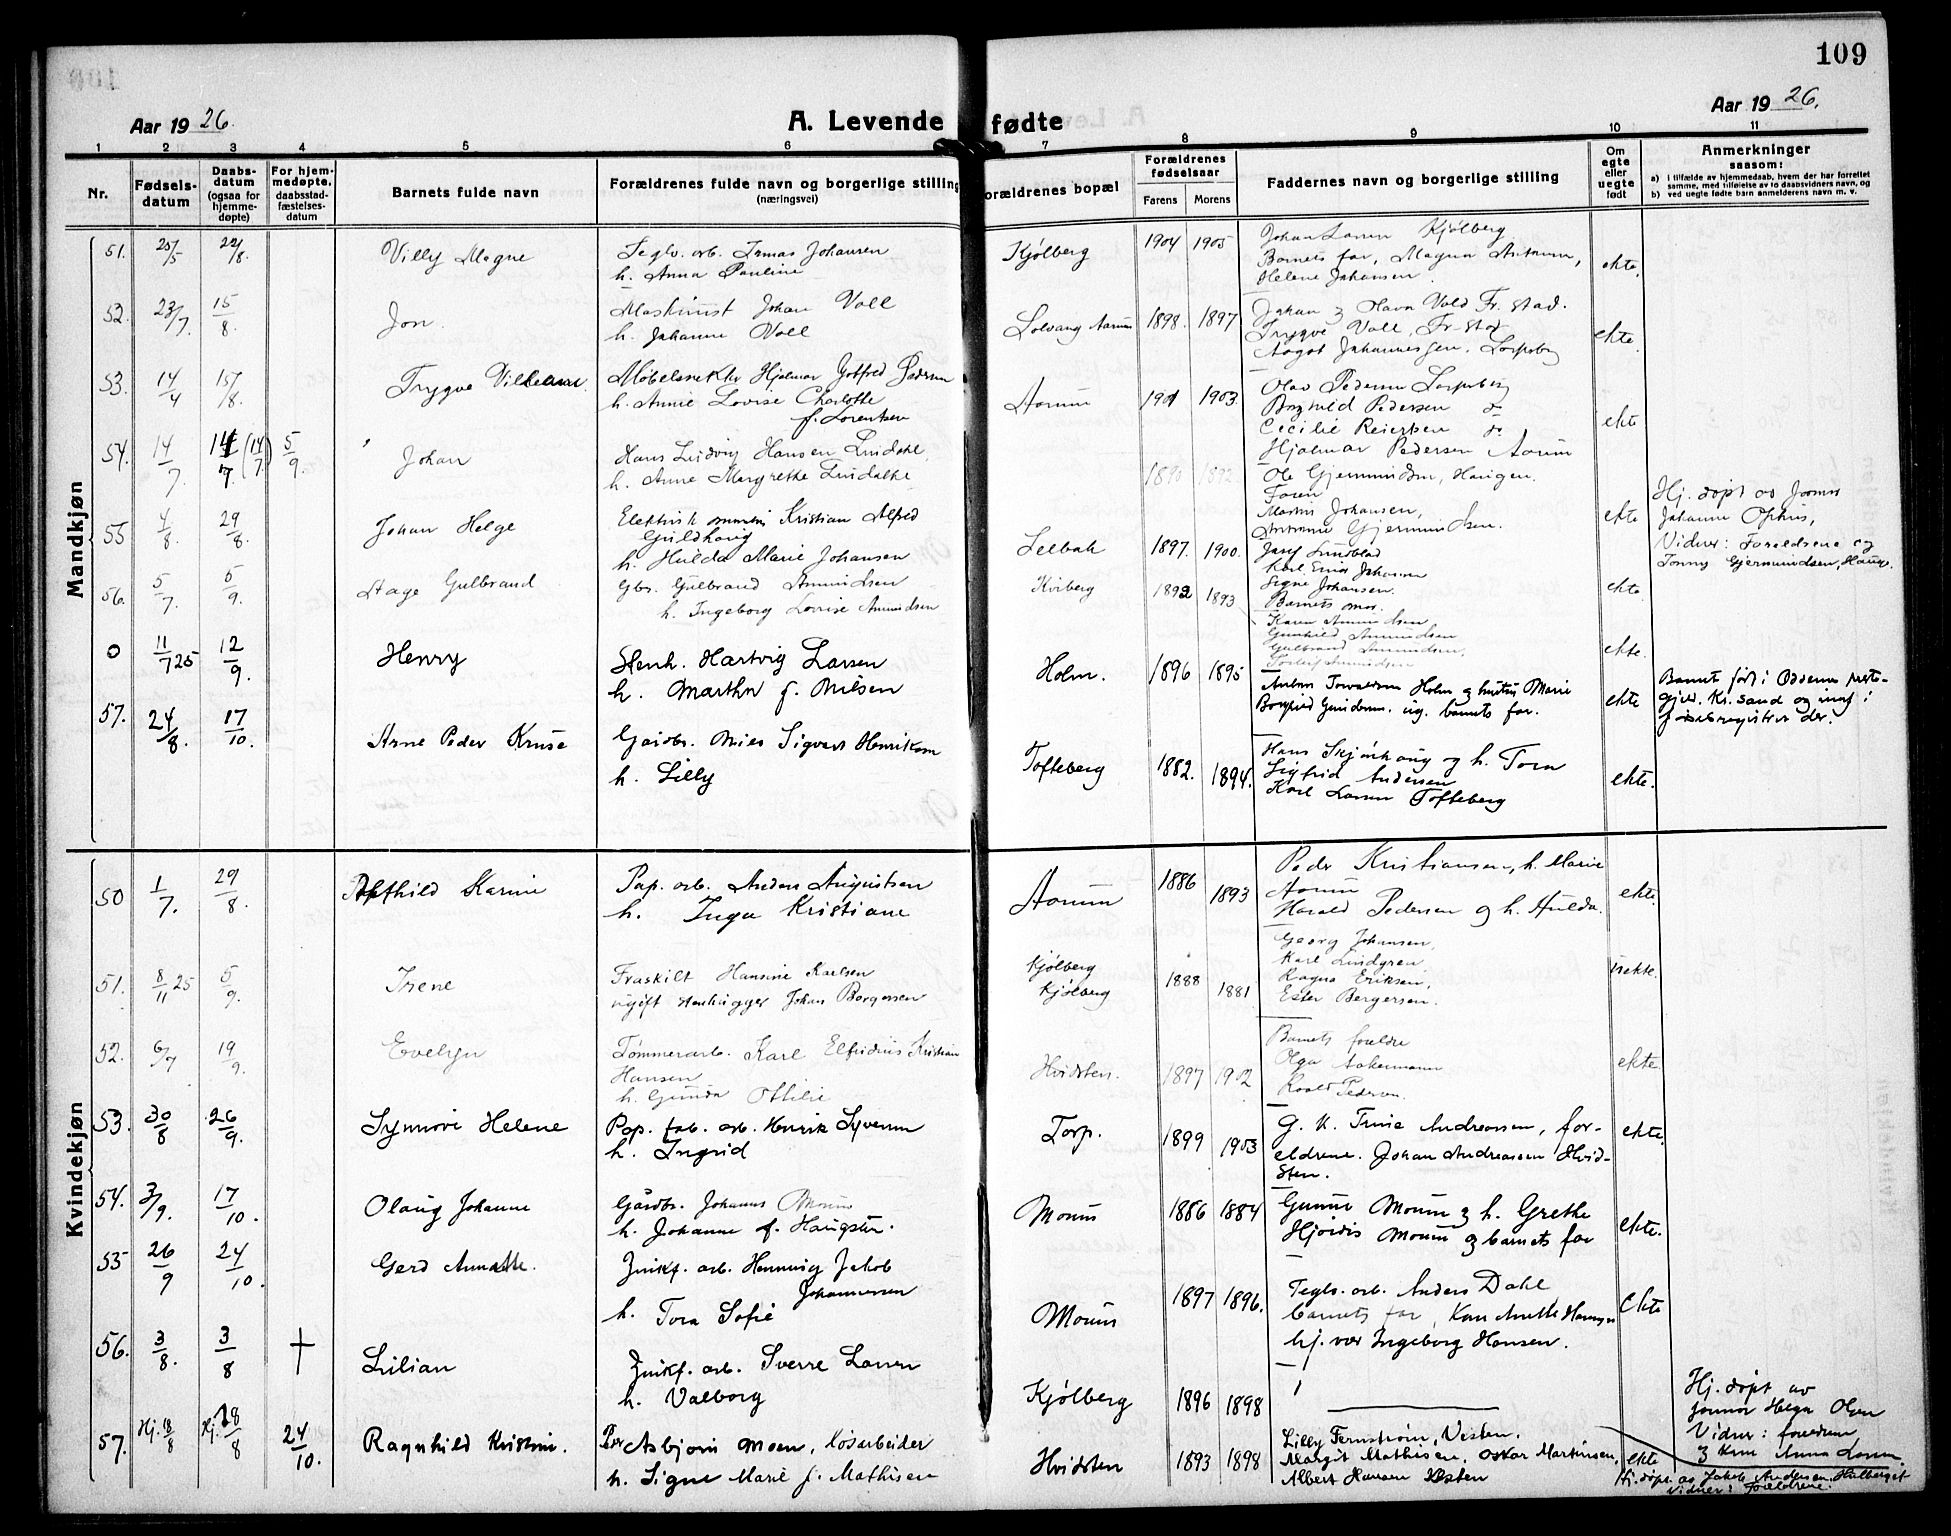 109
Aar 1926.
A. Levende fødte
Aar 1926.
1 2 3 4 5 6 7 8 9 10 11
Nr.
Fødsels-
datum
Daabs-
datum
(ogsaa for
hjemme-
døpte)
For hjem-
medøpte,
daabsstad-
fæstelses-
datum
Barnets fulde navn
Forældrenes fulde navn og borgerlige stilling
(næringsvei)
orældrenes bopæl
Forældrenes
fødselsaar
Farens Morens
Faddernes navn og borgerlige stilling
Om
egte
eller
uegte
født
Anmerkninger
saasom:
a) i tilfælde av hjemmedaab, hvem der har forrettet
samme, med tilføielse av to daabsvidners navn, og
b) ved uegte fødte barn anmelderens navn m. v.
Mandkjøn
51. 25/5 22/8. Villy Magne
Teglv. arb. Johansen
h. Anna Pauline
Kjølberg 1904 1905
Johan Larsen Kjølberg
Barnets far, Magna
Helene Johansen
ekte.
52. 23/7. 15/8. Jon.
Maskinist Johan Voll
h. Johanne Voll
Aarum 1898. 1897
Trygve Voll, Fr-stad
ekte.
53. 14/4 15/8. Trygve
Hjalmar Gotfred Pedersen
h. Annie Lovise Charlotte
f. Lorentsen
Aarum 1901 1903
Olav Pedersen
Pedersen do
Cecilie Reiersen do
Hjalmar Pedersen Aarum
ekte
54. 14/7. (14/7) 5/9. Johan
Hans Ludvig Hansen
h. Anne Margrethe
Ole Gjermundsen, Haugen.
Faren
Martin Johansen,
Gjermundsen.
ekte
Hj. døpt av
Johanne
Vidner: Foreldrene og
Tonny Gjermundsen, Hauge.
55 4/8. 29/8. Johan Helge
Elektrisk Kristian Alfred
h. Hulda Marie Johansen
1897. 1900.
Josef Lundblad
Karl Johansen
Signe Johansen.
Barnets mor.
ekte
56. 5/7. 5/9. Aage Gulbrand
Gbr. Gulbrand Amundsen
h. Ingeborg Lovise Amundsen
Kviberg 1892 1893
Karen Amundsen
Gunhild Amundsen
Gulbrand Amundsen,
Amundsen
ekte.
0 11/7 25 12/9. Henry
Stenh. Hartvig Larsen
h. Martha f. Nilsen
Holm. 1896 1895
Holm og hustru Marie
barnets far.
ekte
Barnet født i Oddernes preste-
gjeld. Kr.sand og innf. i
fødselsregistret der.
57. 24/8. 17/10. Arne Peder Kruse
Gårdbr. Nils Sigvart Henriksen
h. Lilly
Tofteberg 1882. 1894.
Hans Skjørshaug og h. Tora
Sigfrid Andersen
Karl Larsen Tofteberg
ekte.
Kvindekjøn
50 1/7. 29/8. Karine
Pap. arb. Anders Augustsen
h. Inga Kristiane
Aarum 1886 1893
Peder Kristiansen, h. Marie
Aarum
Harald Pedersen og h. Hulda.
ekte.
51. 8/11 25 5/9. Irene
Fraskilt Hansine Karlsen
ugift stenhugger Johan Borgersen
Kjølberg
Kjølberg
1888 1881
Georg Johansen,
Karl Lindgren
Ragna Eriksen,
Ester Bergersen.
uekte.
52. 6/7 19/9. Evelyn
Tømmerarb. Karl Elfridius Kristian
Hansen
h. Gunda Ottilie
Hvidsten. 1897 1902
Barnets foreldre
Olga Ackermann
Roald Pedersen.
ekte
53. 30/8 26/9. Synnøve Helene
Pap. fab. arb. Henrik Syversen
h. Ingrid
Torp. 1899 1903
G. K. Trine Andreassen, for-
eldrene. Johan Andreassen Hvid-
sten.
ekte.
54. 3/9. 17/10. Olaug Johanne
Gårdbr. Johannes Moum
h. Johanne f. Haugsten.
Moum 1886 1884
Gunnar Moum og h. Grethe
Hjørdis Moum og barnets far
ekte.
55 26/9 24/10. Gerd Annette.
Zinkf. arb. Henning Jakob
Johannessen
h. Tora Sofie
Moum 1897 1896.
Teglv. arb. Anders Dahl
barnets far, Karen Anette Hansen
hj. vær Ingeborg Hansen.
ekte
56. 3/8. 3/8 † Lilian
Zinkf. arb. Sverre Larsen
h. Valborg
Kjølberg 1896 1898
Hj. døpt av
jormor Helga Olsen
Vidner: foreldrene
og kone Anna Larsen
57. Hj. 18/8 Hj. 18/8 24/10. Ragnhild Kristine.
Per Asbjørn Moen, løsarbeider
h. Signe Marie f. Mathisen
Hvidsten 1893 1898
Lilly Fernstrøm, Vesten.
Margit Mathisen, Oskar Martinsen,
Albert Hansen Vesten
ekte
Hj. døpt av Jakob Andersen, Hulberget
Vidner: Foreldrene.